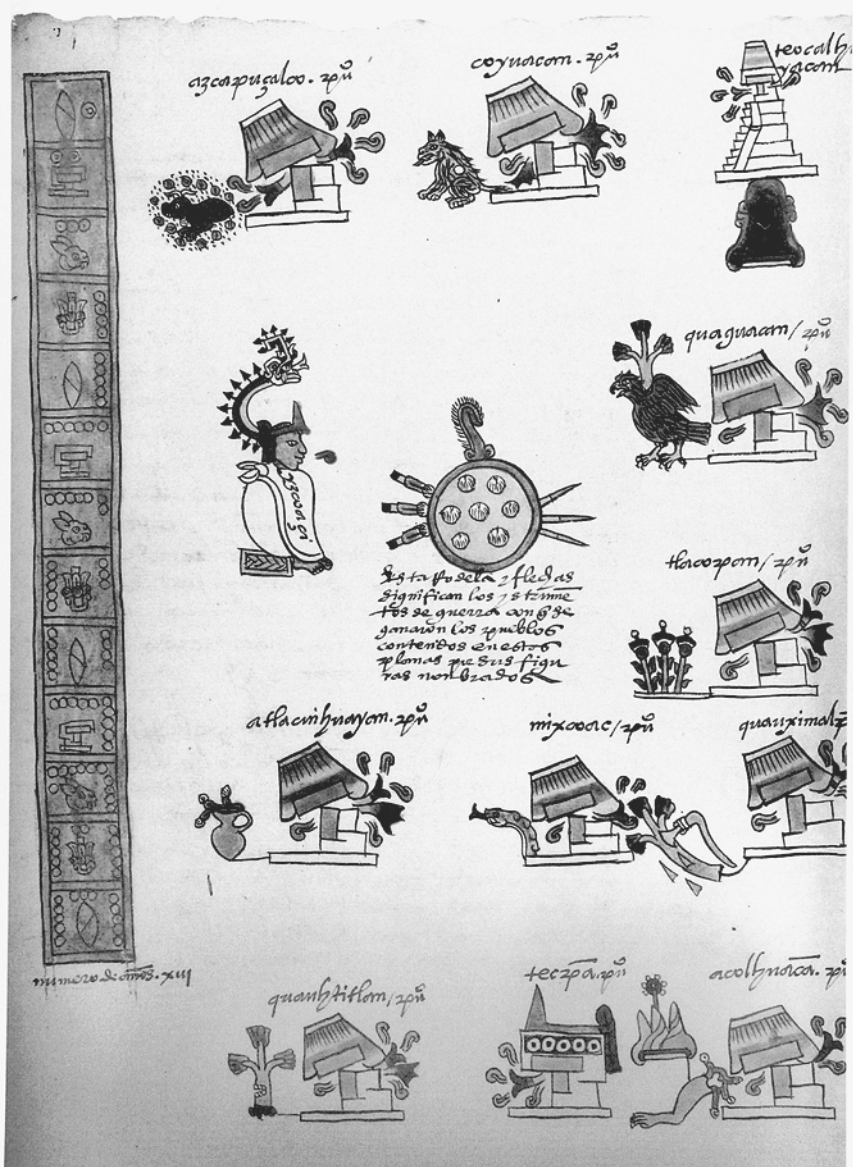 azcapuçalco. puº
coyuacam. puº
teocalh
yacam
quaguacam / puº
yzcoaci
esta Rodela y flechas
significan los ystrume
tos de guerra con q̃ se
ganaron los pueblos
contenidos en estas
planas por sus figu
ras nonbrados
tlacopam / puº
atlacuihuayan. puº
mixcoac / puº
quauximalp
numero de años. xiii
quauhtitlam / puº
tecpã. puº
acolhuacã. puº